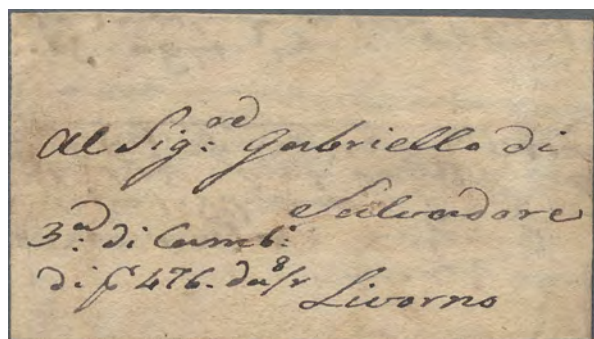 Al Sig:re Gabriello di
Salvadore
3a: di Camb:
di p 476. da 8/r
Livorno